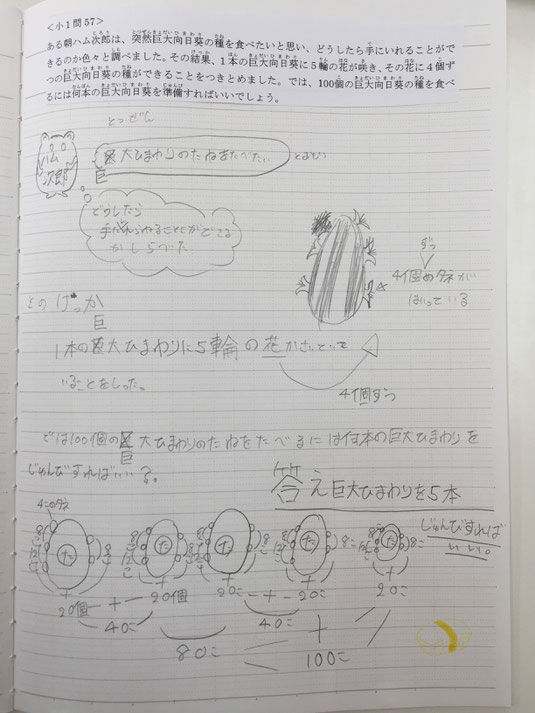 <小1問57>
ある朝ハム次郎は、突然巨大向日葵の種を食べたいと思い、どうしたら手にいれることがで
きるのか色々と調べました。その結果、1本の巨大向日葵に5輪の花が咲き、その花に4個ず
つの巨大向日葵の種ができることをつきとめました。では、100個の巨大向日葵の種を食べ
るには何本の巨大向日葵を準備すればいいでしょう。
とつぜん
ハム
次郎
大ひまわりのたねをたべたい
巨
どうしたら
手が入れられることができる
かしらべた
ずつ
4個のタネが
はいっている
そのけっか
巨
1本の大ひまわりに5輪の花がさいて
いることをしった。
4個ずつ
では100個の大ひまわりのたねをたべるには何本の巨大ひまわりを
巨
じゅんびすればいい?。
答え巨大ひまわりを5本
じゅんびすれば
いい。
4こタネ
8こ 12こ た 8こ 12こ た 8こ 12こ た 8こ 12こ た 8こ 12こ た 8こ
+ + + + +
20個 + 20個 20こ + 20こ 20こ
40こ 40こ +
80こ 100こ